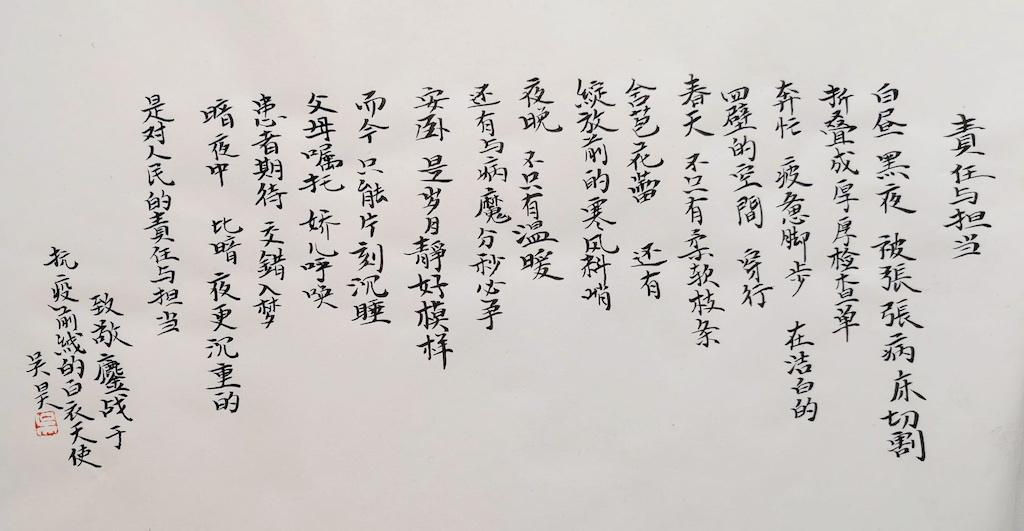 責任与担当
白昼 黑夜 被張張病床切割
折叠成厚厚检查单
奔忙 疲惫脚步 在洁白的
四壁的空間 穿行
春天 不只有柔软枝条
含苞花蕾 还有
綻放前的寒风料峭
夜晚 不只有温暖
还有与病魔分秒必争
安卧 是岁月靜好模样
而今 只能片刻沉睡
父母嘱托 娇儿呼唤
患者期待 交錯入梦
暗夜中 比暗夜更沉重的
是对人民的責任与担当
致敬鏖战于
抗疫前线的白衣天使
吴昊